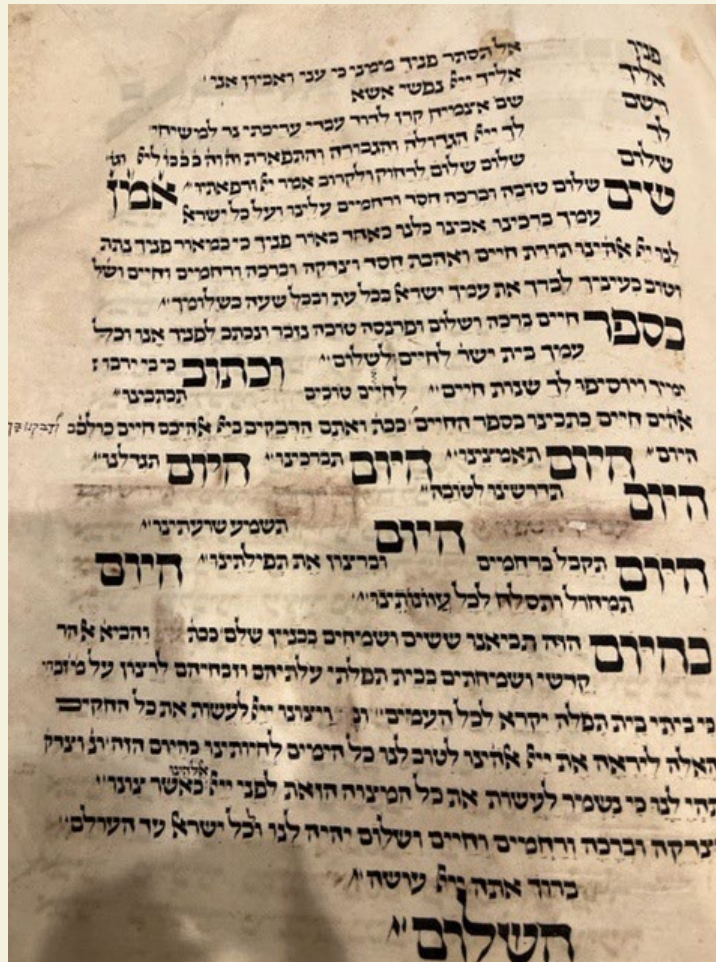 פניך אל תסתר פניך מימני כי עני ואביון אני
אליך אליך ייא נפשי אשא
ושם שם אצמיח קרן לדוד עבדי ערכתי נר למשיחי
לך לך ייא הגדולה והגבורה והתפארת
שלום שלום שלום לרחוק ולקרוב אמר יא ורפאתיו
שים שלום טובה וברכה חסד ורחמים עלינו ועל כל ישרא אמן
עמיך ברכינו אבינו כלנו כאחד באור פניך כי במאור פניך נתת
לנו ייא אהינו תורת חיים ואהבת חסד וצדקה וברכה ורחמים וחיים ושל
וטוב בעיניך לברך את עמיך ישרא בכל עת ובכל שעה בשלומיך
בספר חיים ברכה ושלום ופרנסה טובה נזכר ונכתב לפניך אנו וכל
עמך בית ישר לחיים ולשלום וכתוב כי בי ירבו
ימיך ויוסיפו לך שנות חיים לחיים טובים תכתבינו
אהים חיים כתבינו בספר החיים ככת ואתם הדבקים בייא אהיכם חיים כולכם
היום היום תאמצינו היום תברכינו היום תגדלנו
היום תדרשינו לטובה
היום תשמע שועתינו
היום תקבל ברחמים וברצון את תפילתינו היום
תמיחול ותסלח לכל עוונותינו
כהיום הזה תביאנו ששים ושמיחים בבניין שלם ככת והביא אהר
קדשי ושמיחתים בבית תפלתי עלתיהם וזבחיהם לרצון על מזבחי
כי ביתי בית תפלה יקרא לכל העמים ונ ויצונו ייא לעשות את כל החקים
האלה ליראה את ייא אהינו לטוב לנו כל הימים לחיותינו כהיום הזה ונ וצדק
תהי לנו כי נשמיר לעשות את כל המיצוה הזאת לפני ייא אלהינו כאשר צונו
וצדקה וברכה ורחמים וחיים ושלום יהיה לנו ולכל ישרא עד העולם
ברוך אתה ייא עושה
השלום